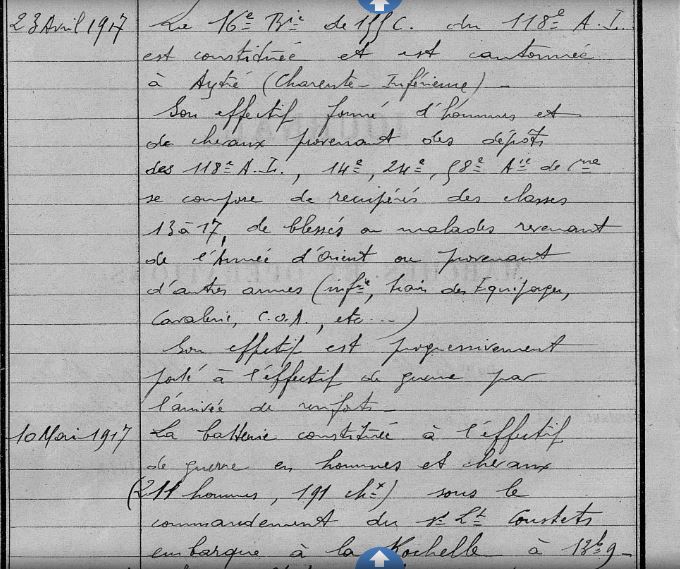 23 Avril 1917 La 16e Bie de 155 C. du 118e A.L.
est constituée et est cantonnée
à Aytré (Charente-Inférieure) -
Son effectif formé d'hommes et
de chevaux provenant des dépôts
des 118e A.L., 14e, 24e, 58e Aie de Cne
se compose de récupérés des classes
13 à 17, de blessés ou malades revenant
de l'Armée d'Orient ou provenant
d'autres armes (infie, train des Equipages,
Cavalerie, C.O.A., etc...)
Son effectif est progressivement
porté à l'effectif de guerre par
l'arrivée de renforts -
10 Mai 1917 La batterie constituée à l'effectif
de guerre en hommes et chevaux
(211 hommes, 191 chx) sous le
commandement du s/Lt Coustets
embarque à la Rochelle à 13h9 -